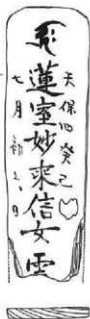 天保四癸巳
蓮室妙来信女霊
七月初日